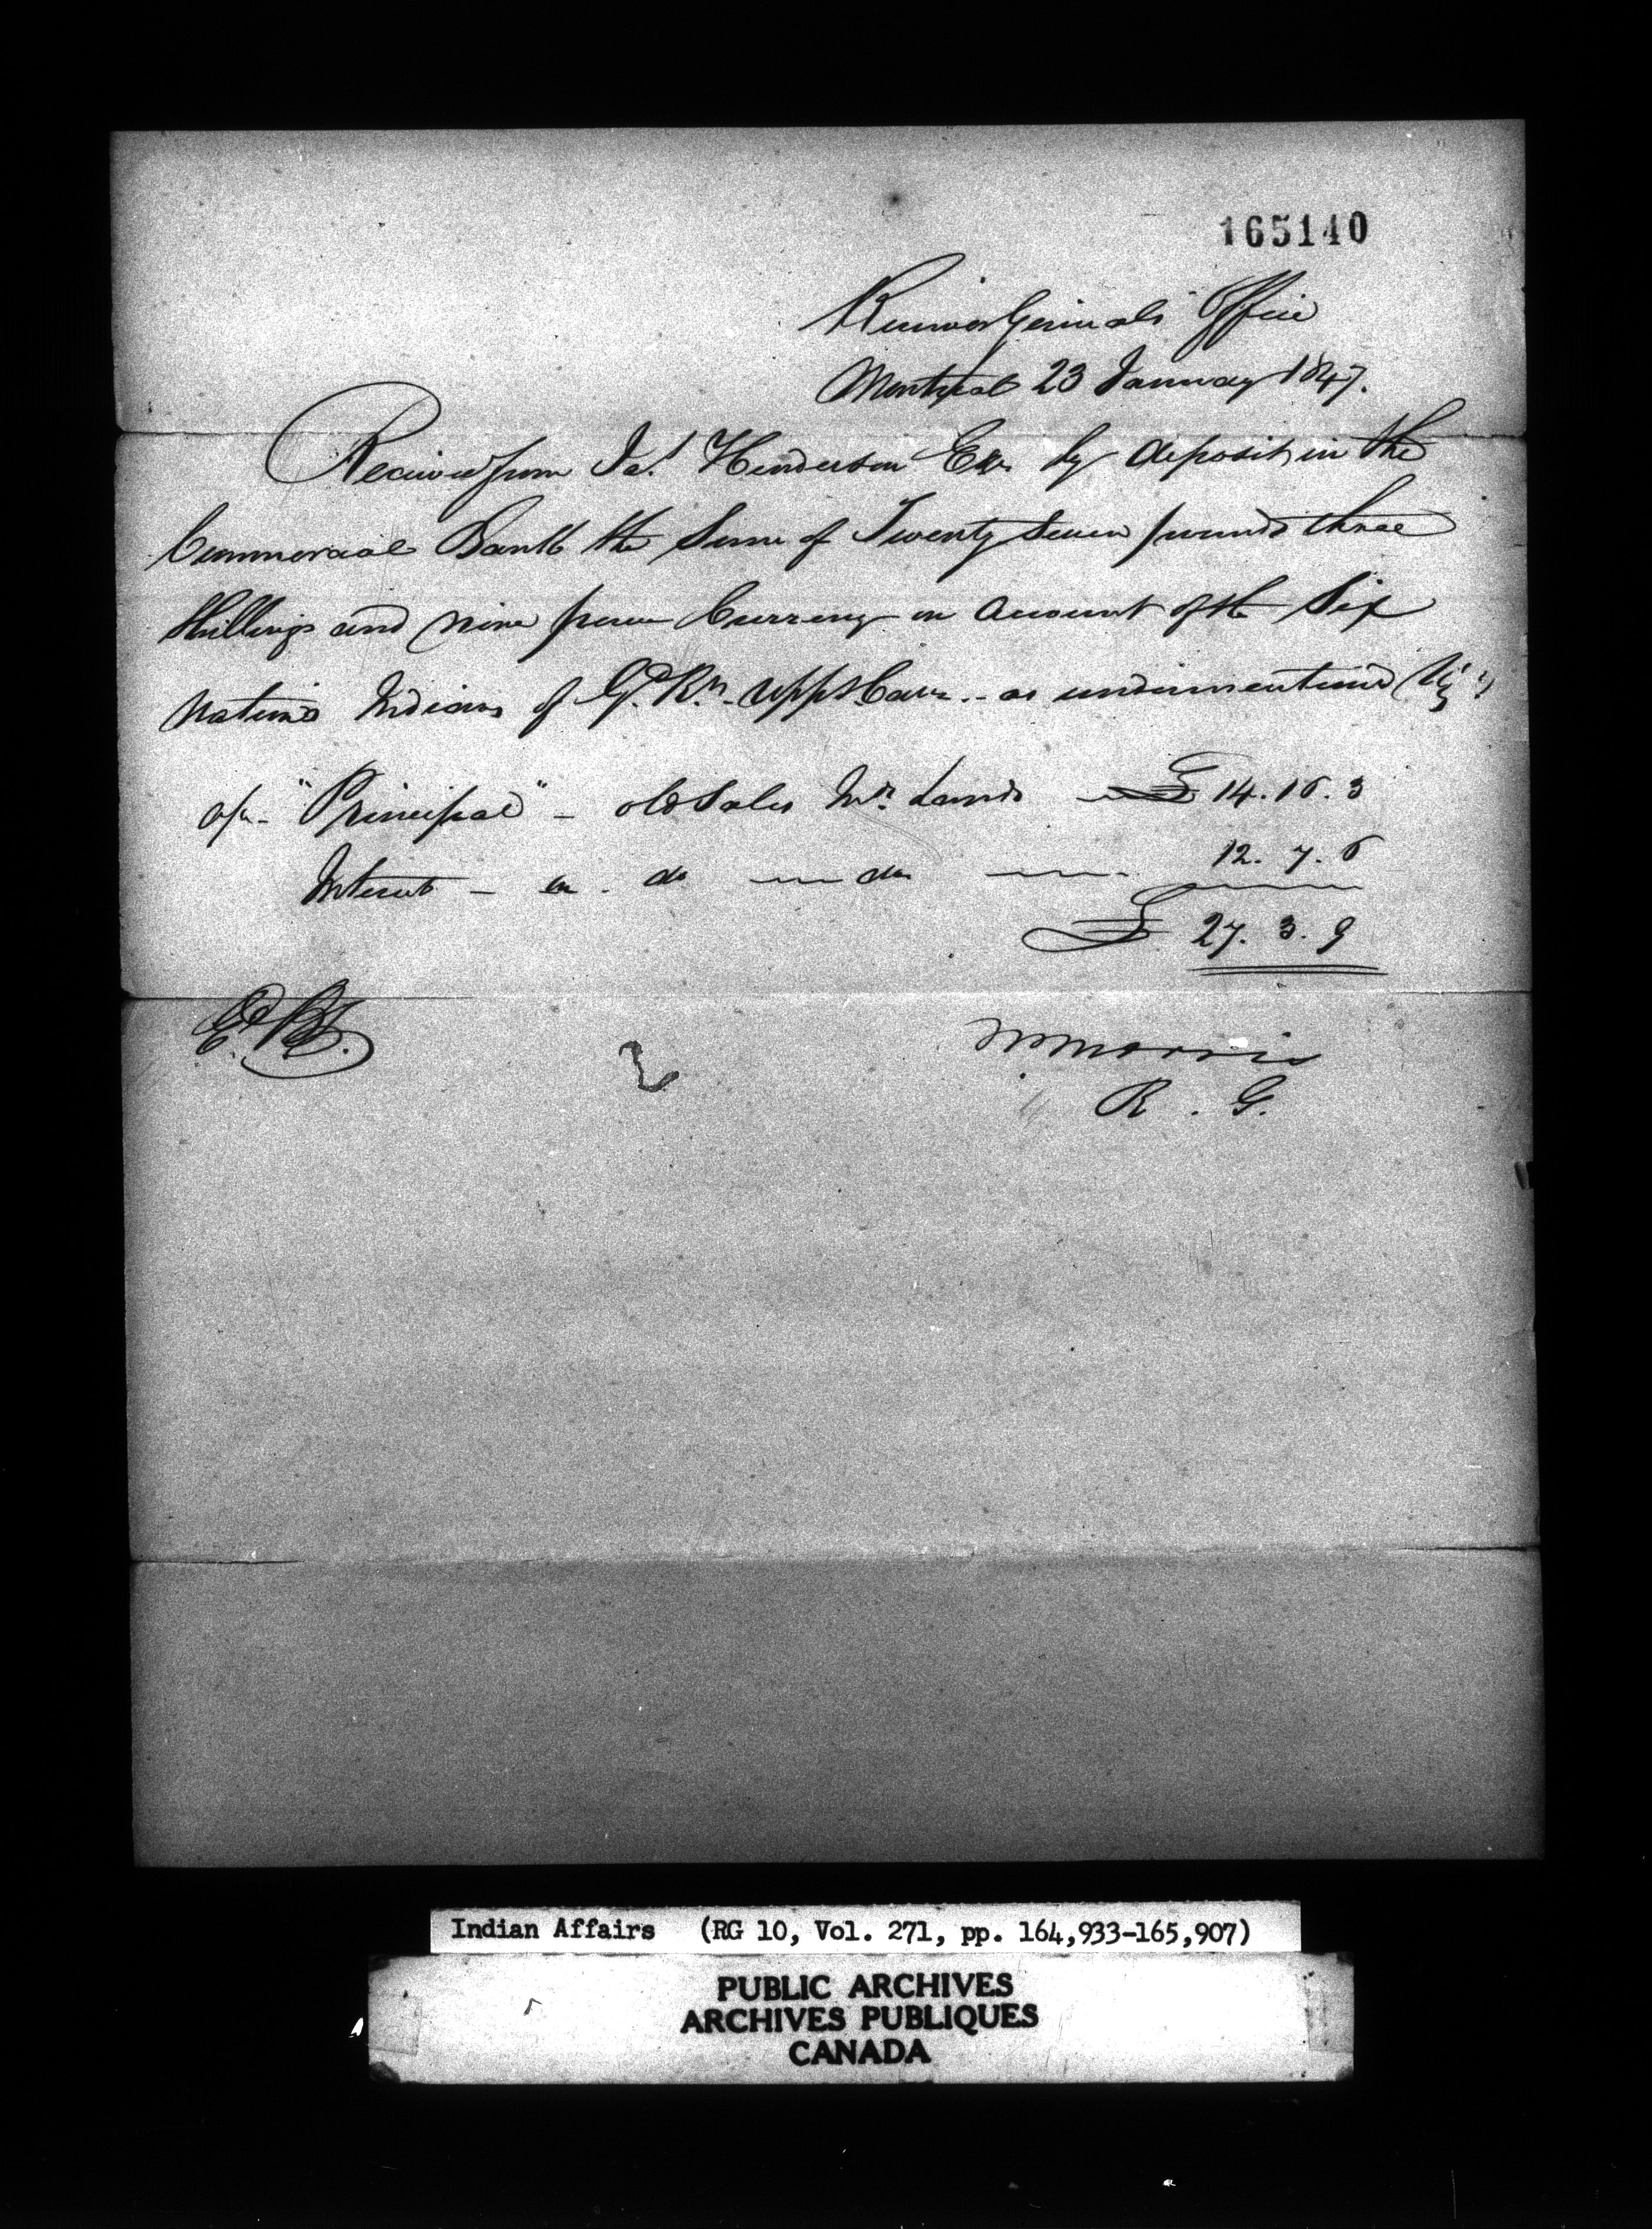 165140
Receiver Generals Office
Montreal 23 January 1847.
Received from Jas. Henderson Esqr by deposit in the
Commercial Bank the Sum of Twenty Seven pounds three
Shillings and nine pence Currency on account of the Six
Nations Indians of Gd. Rr. Upper Cana. - as undermentioned Viz:
a/c - "Principal" - old Sales Lands £ 14.16.3
Interest - on - do do 12.7.6
£ 27.3.9
Wm Morris
R. G.
Indian Affairs (RG 10, Vol. 271, pp. 164,933-165,907)
PUBLIC ARCHIVES
ARCHIVES PUBLIQUES
CANADA